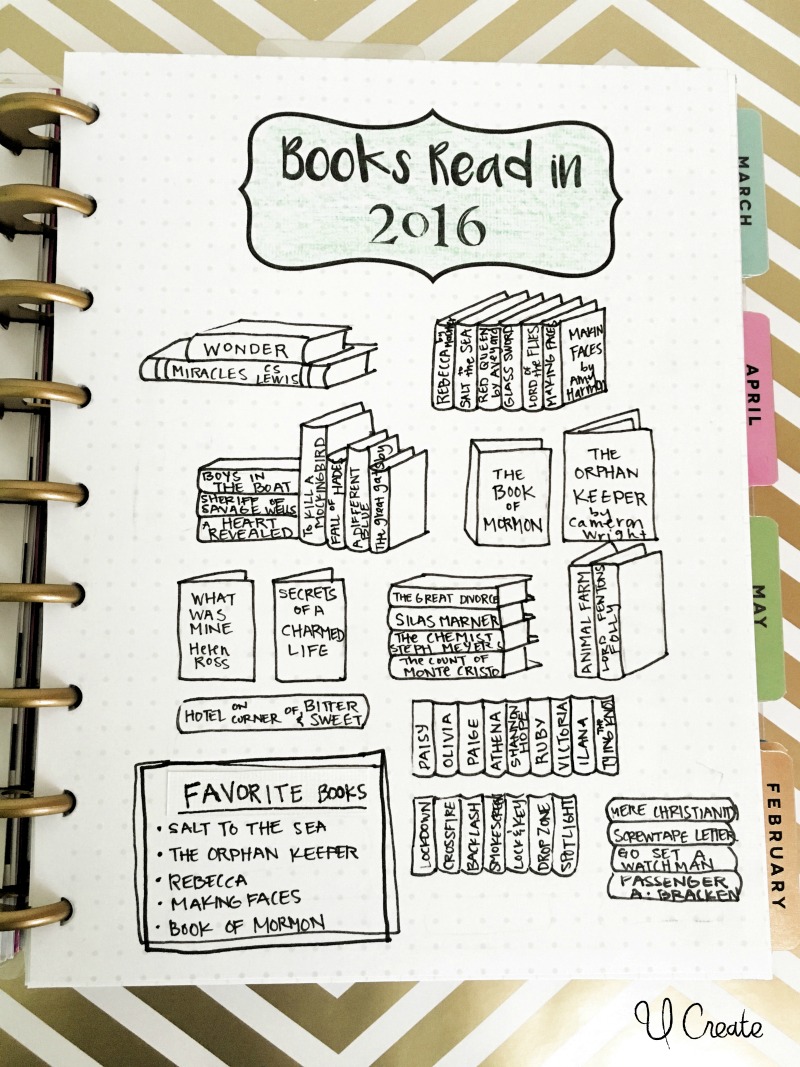 Books Read in
2016
MARCH
APRIL
MAY
FEBRUARY
WONDER
MIRACLES CS
LEWIS
REBECCA
SALT TO THE SEA
RED QUEEN
by Aveyard
GLASS SWORD
LORD OF THE FLIES
MAKING FACES
MAKIN
FACES
by
Amy
Harmon
BOYS IN
THE BOAT
SHERIFF OF
SAVAGE WELLS
A HEART
REVEALED
TO KILL A
MOCKINGBIRD
FALL OF HADES
A DIFFERENT
BLUE
The great gatsby
THE
BOOK
OF
MORMON
THE
ORPHAN
KEEPER
by
Cameron
Wright
WHAT
WAS
MINE
Helen
Ross
SECRETS
OF A
CHARMED
LIFE
THE GREAT DIVORCE
SILAS MARNER
THE CHEMIST
STEPH MEYERS
THE COUNT OF
MONTE CRISTO
ANIMAL FARM
LORD FENTONS
FOLLY
HOTEL ON CORNER OF BITTER & SWEET
PAISY
OLIVIA
PAIGE
ATHENA
SHANNON
HOPE
RUBY
VICTORIA
ILANA
THE
LYING
LOCKDOWN
CROSSFIRE
BACKLASH
SMOKESCREEN
LOCK & KEY
DROP ZONE
SPOTLIGHT
MERE CHRISTIANITY
SCREWTAPE LETTER
GO SET A
WATCHMAN
PASSENGER
A. BRACKEN
FAVORITE BOOKS
• SALT TO THE SEA
• THE ORPHAN KEEPER
• REBECCA
• MAKING FACES
• BOOK OF MORMON
U Create